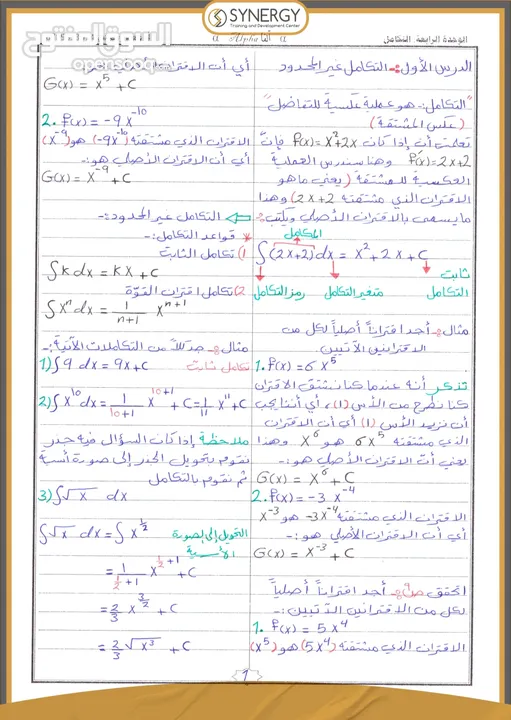 SYNERGY
Training and Development Center
السوق المفتوح
opensooq.com
الوحدة الرابعة التكامل
α Alpha ألفا α
الدرس الأول:- التكامل غير المحدود
"التكامل:- هو عملية عكسية للتفاضل"
(عكس المشتقة)
تعلمت أن إذا كان f(x)=x²+2x فإن
f'(x)=2x+2 وهنا سندرس العملية
العكسية للمشتقة (يعني ما هو
الاقتران الذي مشتقته 2x+2) وهذا
ما يسمى بالاقتران الأصلي ونكتب:-
المكامل
∫(2x+2)dx = x²+2x+C
ثابت التكامل
متغير التكامل
رمز التكامل
مثال:- أجد اقتراناً أصلياً لكل من
الاقترانين الآتيين.
1. f(x) = 6x⁵
تذكر أنه عندما كنا نشتق الاقتران
كنا نطرح من الأس (1)، أي أننا يجب
أن نزيد الأس (1) أي أن الاقتران
الذي مشتقته 6x⁵ هو x⁶ وهذا
يعني أن الاقتران الأصلي هو:-
G(x) = x⁶ + C
2. f(x) = -3x⁻⁴
الاقتران الذي مشتقته -3x⁻⁴ هو x⁻³
أي أن الاقتران الأصلي هو:-
G(x) = x⁻³ + C
أتحقق من فهمي:- أجد اقتراناً أصلياً
لكل من الاقترانين الآتيين:-
1. f(x) = 5x⁴
الاقتران الذي مشتقته (5x⁴) هو (x⁵)
أي أن الاقتران الأصلي هو:-
G(x) = x⁵ + C
2. f(x) = -9x⁻¹⁰
الاقتران الذي مشتقته (-9x⁻¹⁰) هو (x⁻⁹)
أي أن الاقتران الأصلي هو:-
G(x) = x⁻⁹ + C
⇐ التكامل غير المحدود:-
* قواعد التكامل:-
1) تكامل الثابت
∫k dx = kx + C
2) تكامل اقتران القوة
∫xⁿ dx = 1/(n+1) xⁿ⁺¹
مثال:- جد كلاً من التكاملات الآتية:-
1) ∫9 dx = 9x+C تكامل ثابت
2) ∫x¹⁰ dx = 1/(10+1) x¹⁰⁺¹ + C = 1/11 x¹¹ + C
ملاحظة إذا كان السؤال فيه جذر
نقوم بتحويل الجذر إلى صورة أسية
ثم نقوم بالتكامل
3) ∫√x dx
∫√x dx = ∫x^(1/2) التحويل إلى الصورة الأسية
= 1/(1/2+1) x^(1/2+1) + C
= 2/3 x^(3/2) + C
= 2/3 √x³ + C
1